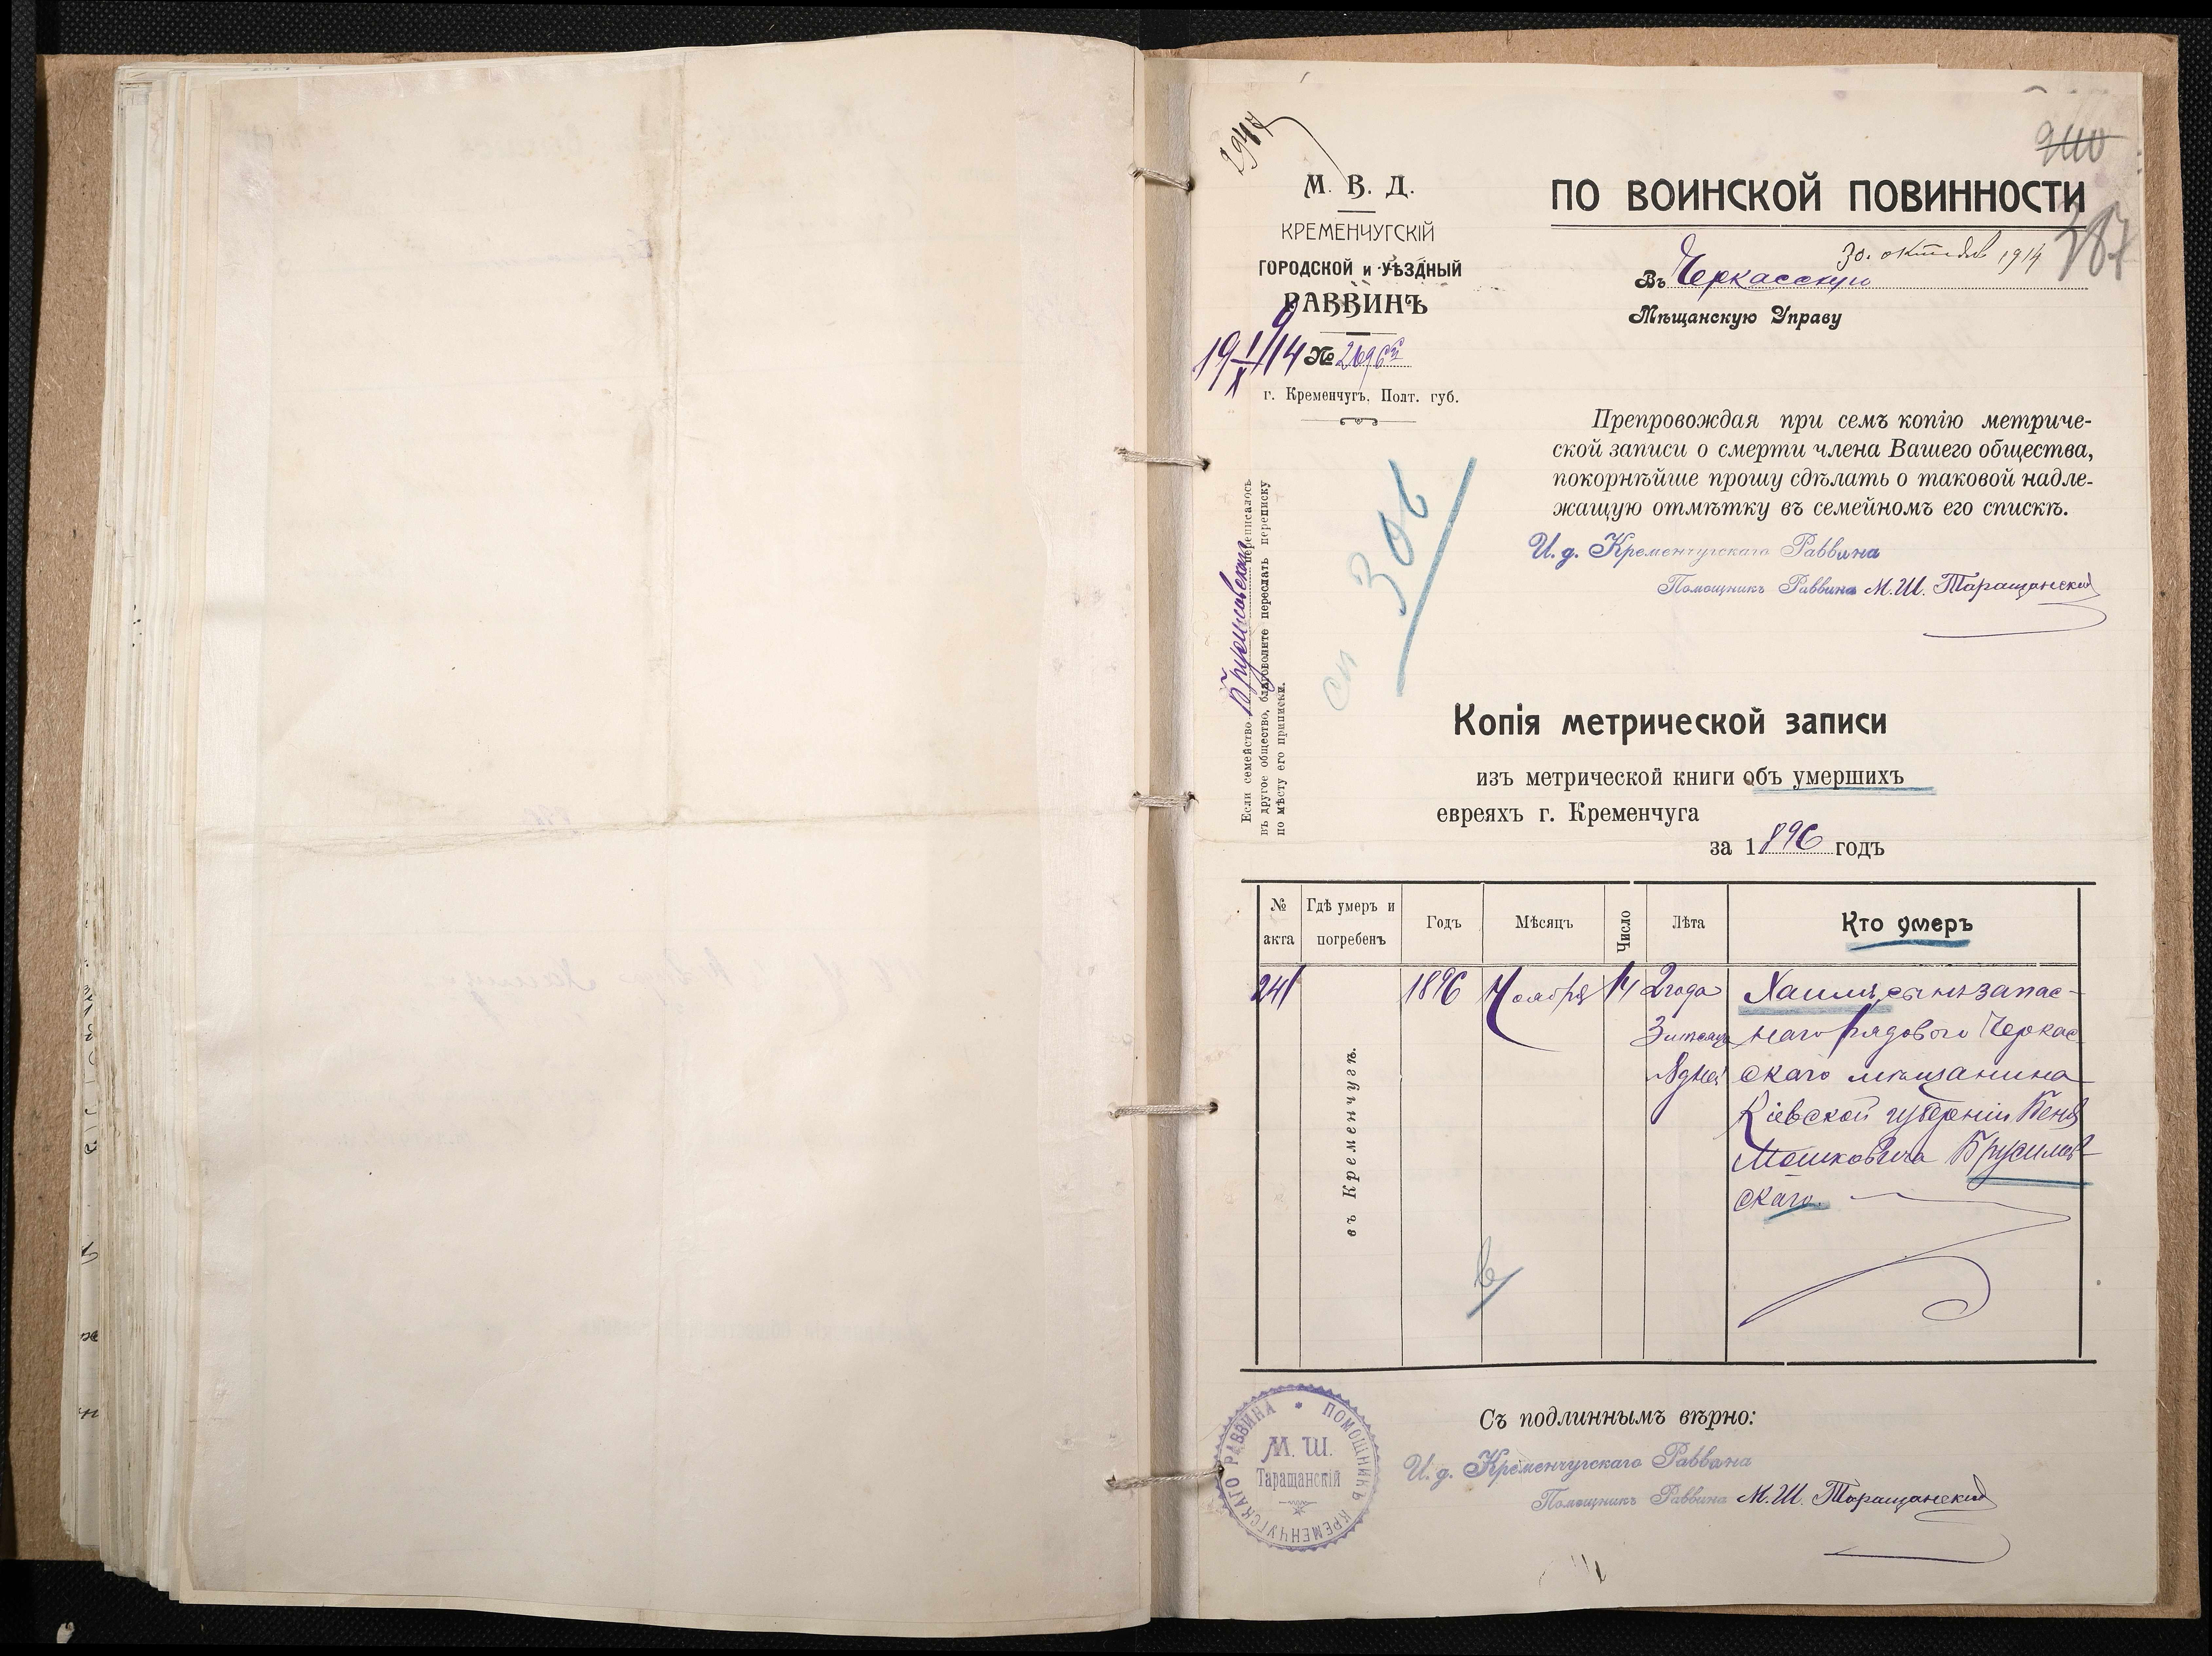 2947
М. В. Д.
КРЕМЕНЧУГСКІЙ
ГОРОДСКОЙ и УѢЗДНЫЙ
РАВВИНЪ
№
г. Кременчугъ, Полт. губ.
ПО ВОИНСКОЙ ПОВИННОСТИ
387
30. октября 1914
Въ Черкасскую
Мѣщанскую Управу
Препровождая при семъ копію метриче-
ской записи о смерти члена Вашего общества,
покорнѣйше прошу сдѣлать о таковой надле-
жащую отмѣтку въ семейномъ его спискѣ.
И. д. Кременчугскаго Раввина
Помощникъ Раввина М. Ш. Таращанскій
Если семейство Брусиловскаго переписалось
въ другое общество, благоволите переслать переписку
по мѣсту его приписки.
сп 306
Копія метрической записи
изъ метрической книги объ умершихъ
евреяхъ г. Кременчуга
за 1896 годъ
№ акта
Гдѣ умеръ и погребенъ
Годъ
Мѣсяцъ
Число
Лѣта
Кто умеръ
241
въ Кременчугѣ.
1896
Ноября
14
2 года
3 мѣсяца
8 дней
Хаимъ, сынъ запас-
наго рядового Черкас
скаго мѣщанина
Кіевской губерніи
Мошковича Брусилов-
скаго.
Съ подлиннымъ вѣрно:
И. д. Кременчугскаго Раввина
Помощникъ Раввина М. Ш. Таращанскій
ПОМОЩНИКЪ КРЕМЕНЧУГСКАГО РАВВИНА
М. Ш.
Таращанскій